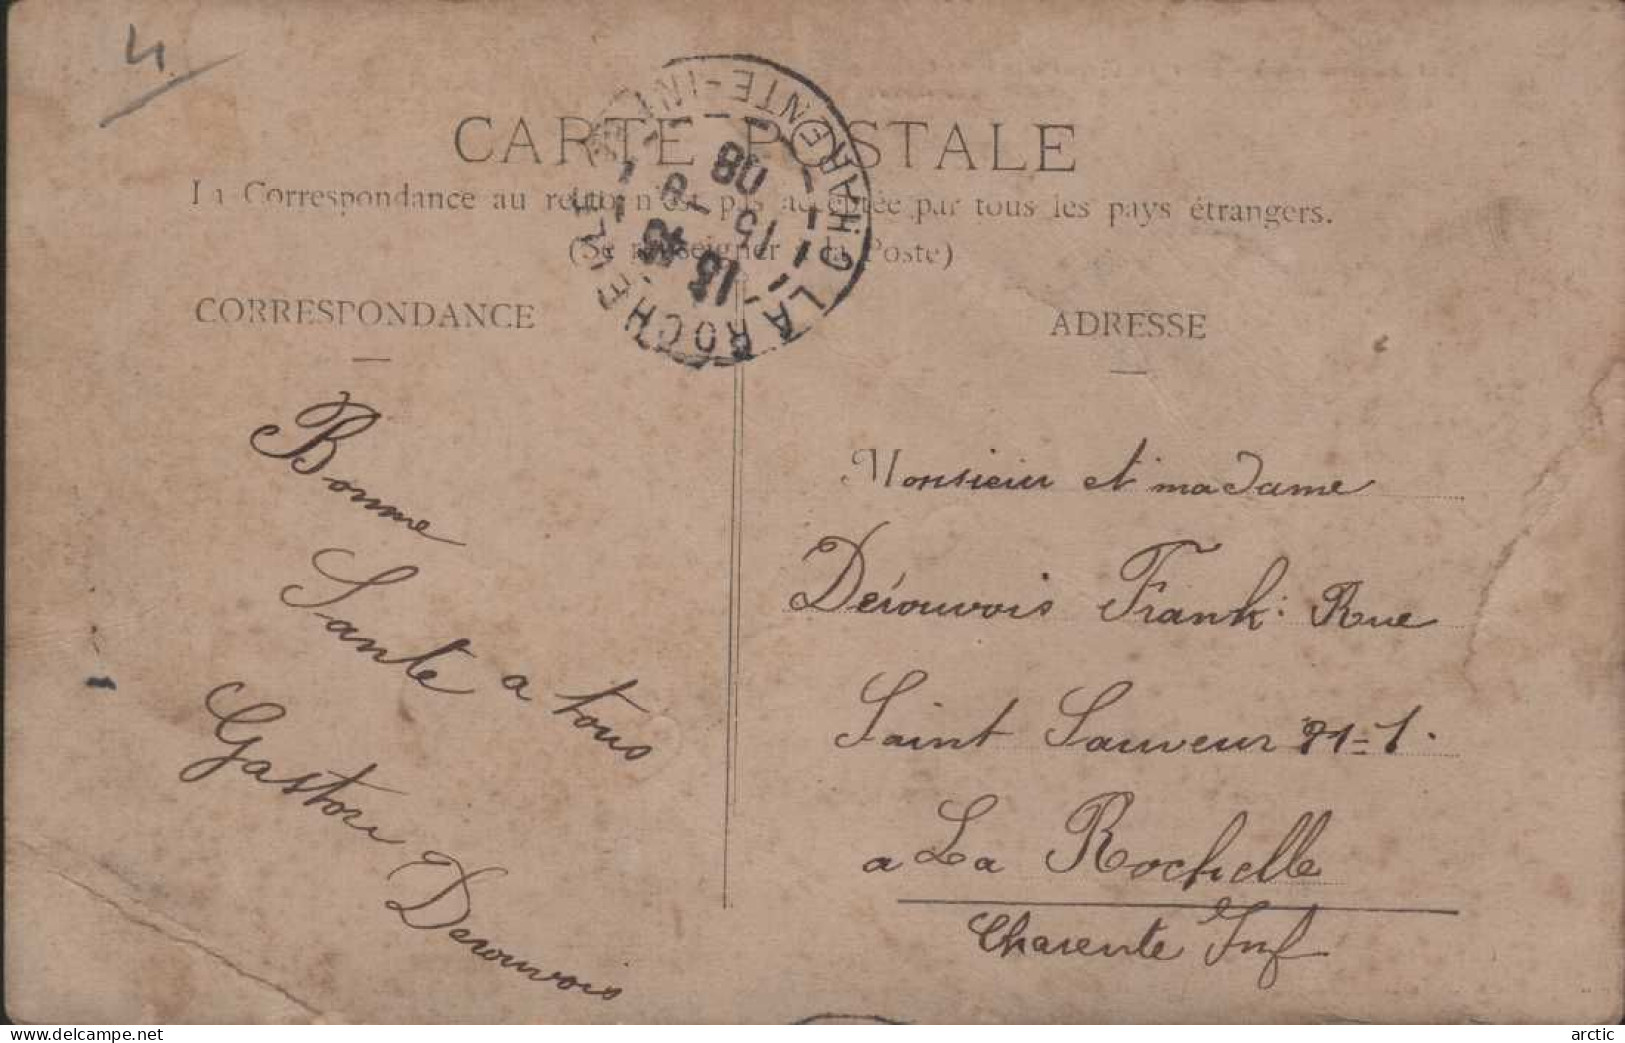 4.
CARTE POSTALE
La Correspondance au recto n'est pas acceptée par tous les pays étrangers.
(Se renseigner à la Poste)
LA ROCHELLE
CHARENTE-INF
15 - 8
08
CORRESPONDANCE
Bonne
Sante a tous
Gaston Derouvois
ADRESSE
Monsieur et madame
Dérouvois Frank: Rue
Saint Sauveur 21=1.
a La Rochelle
Charente Inf
delcampe.net
arctic